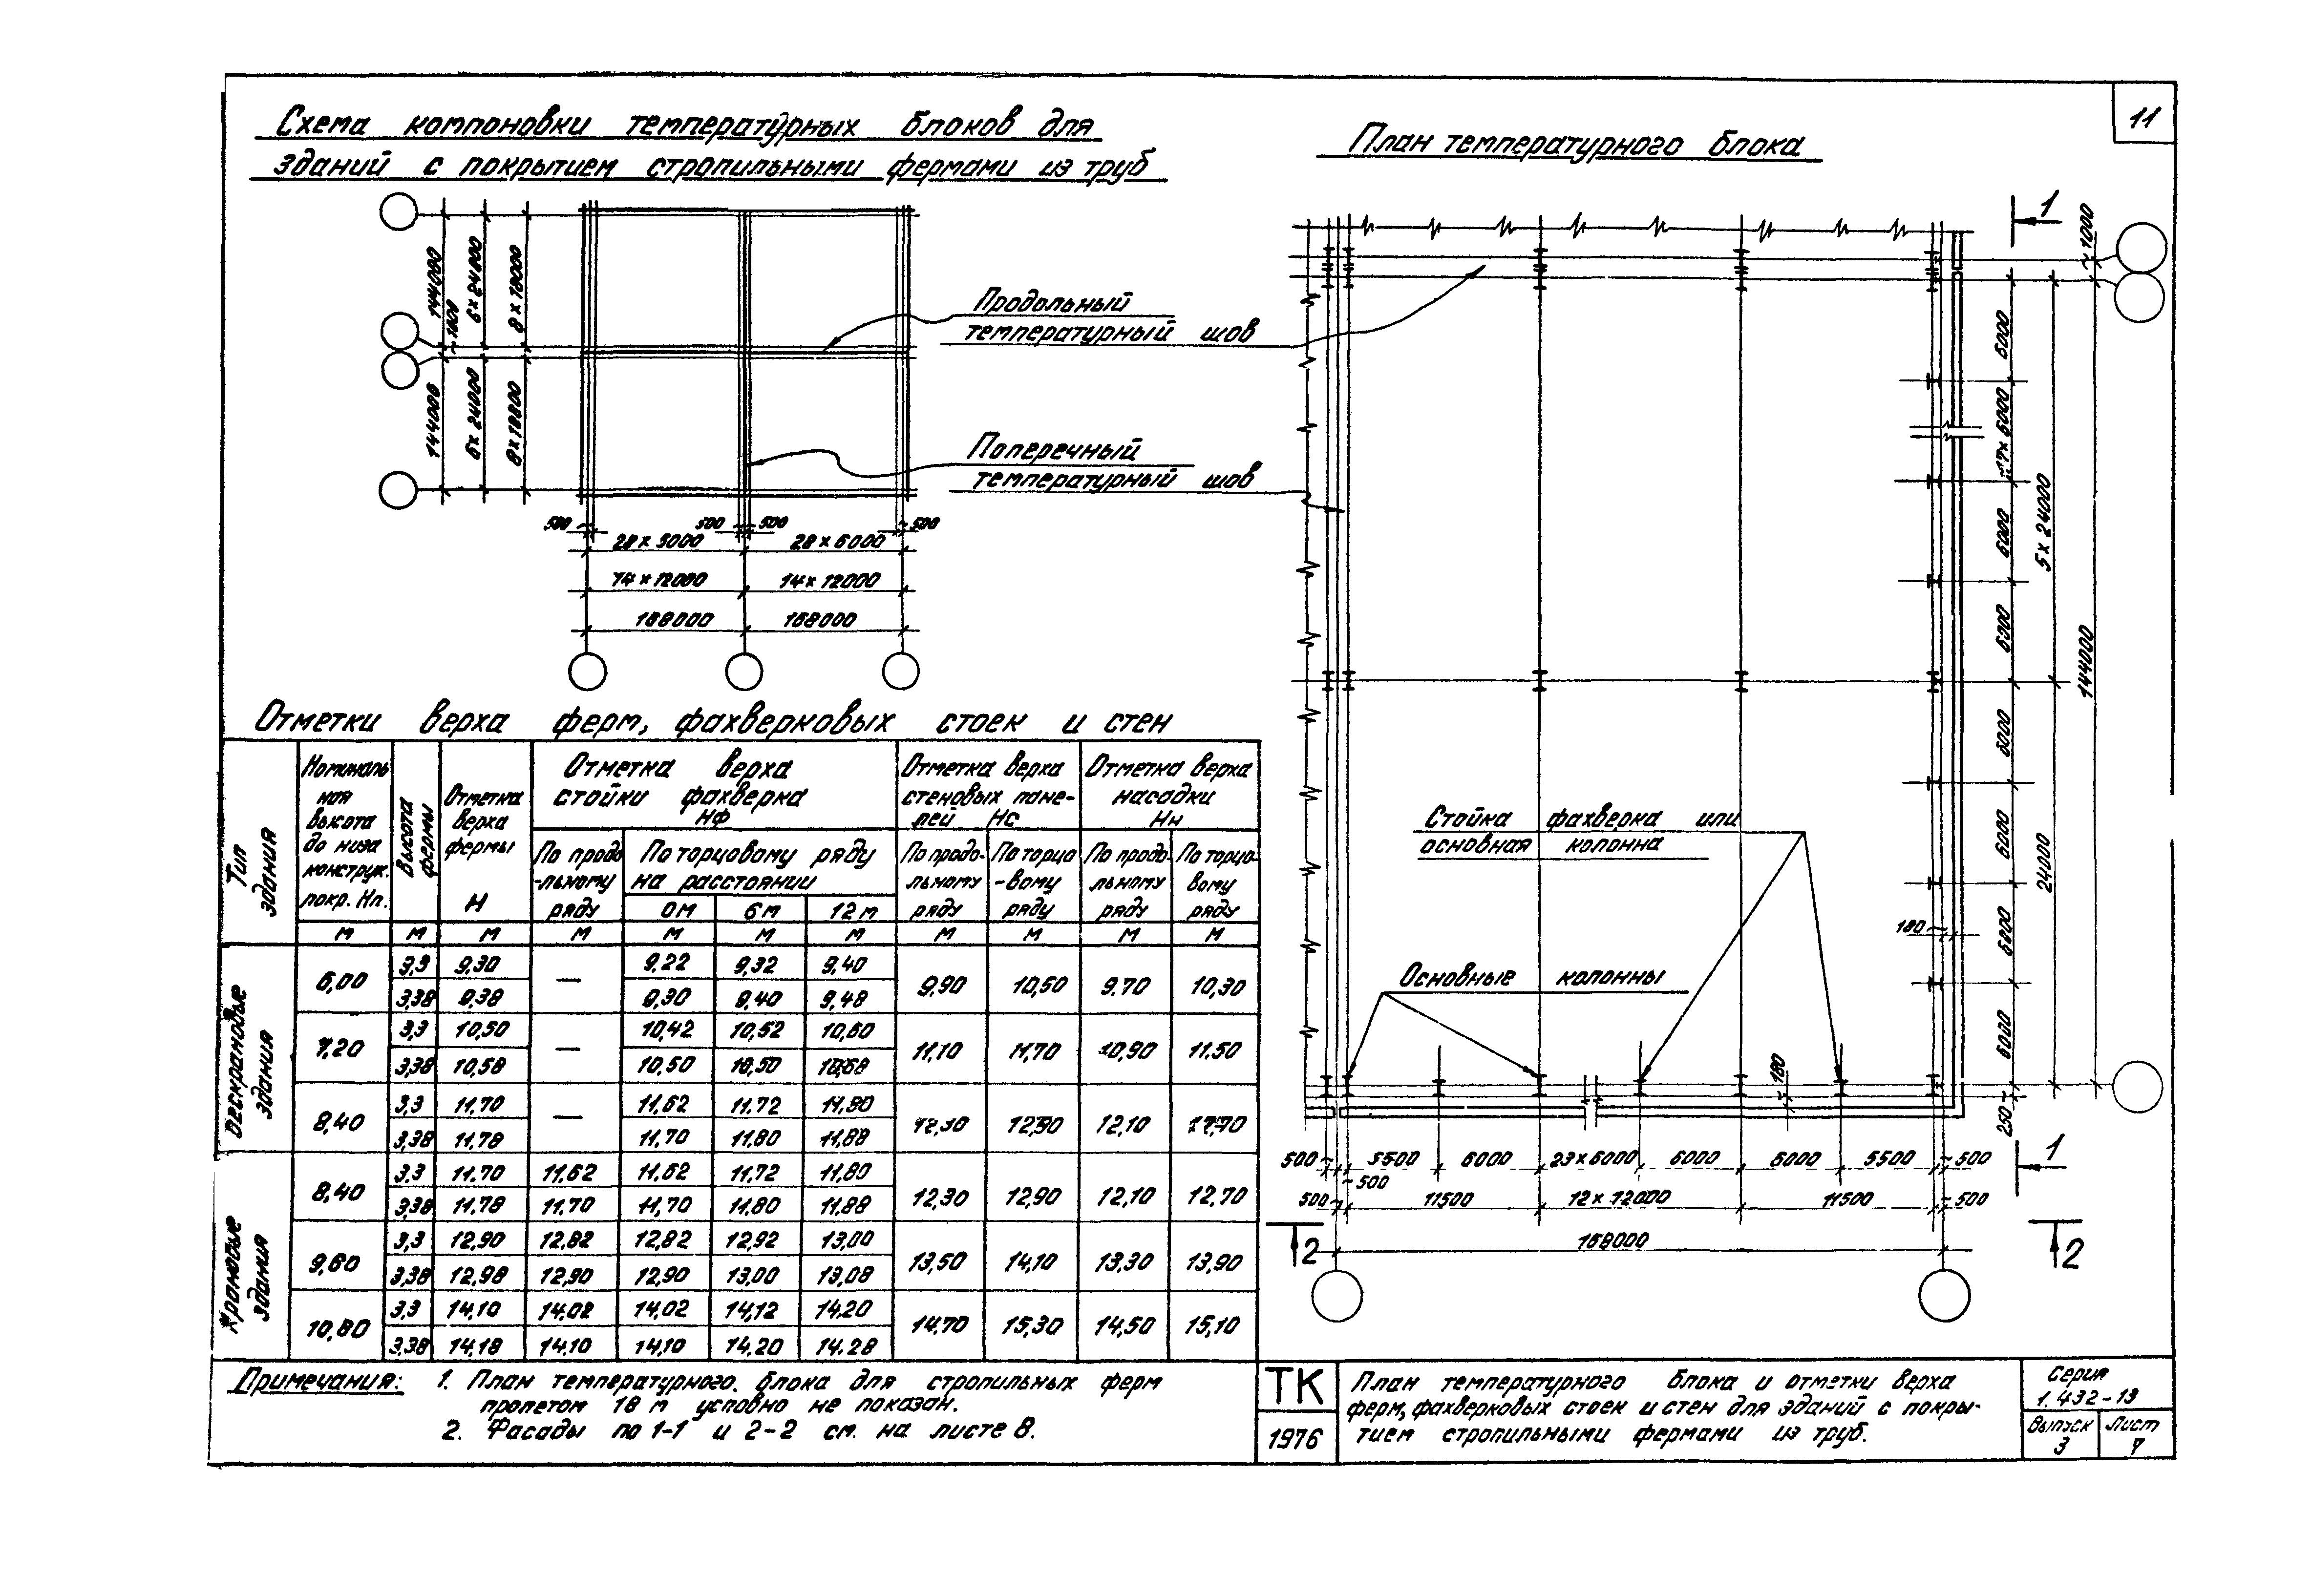 11
Схема компоновки температурных блоков для
зданий с покрытием стропильными фермами из труб
План температурного блока
144000
~1000
6×24000
8×18000
144000
6×24000
8×18000
Продольный
температурный шов
Поперечный
температурный шов
500 500 500 500
28×6000 28×6000
14×12000 14×12000
168000 168000
1
~1000
6000
17×6000
6000
6300
6000
6000
6000
6000
250
5×24000
24000
144000
180
180
Стойка фахверка или
основная колонна
Основные колонны
500 5500 6000 23×6000 6000 6000 5500 ~500
~500
500 11500 12×12000 11500 500
168000
1
2 2
Отметки верха ферм, фахверковых стоек и стен
Тип здания
Номиналь
ная
высота
до низа
конструк.
покр. Нп.
Высота фермы
Отметка
верха
фермы
Н
Отметка верха
стойки фахверка
Нф
По продо
-льному
ряду
По торцовому ряду
на расстоянии
0м 6м 12м
Отметка верха
стеновых пане-
лей Нс
По продо-
льному
ряду
По торцо
-вому
ряду
Отметка верха
насадки
Нн
По продо-
льному
ряду
По торцо-
вому
ряду
м м м м м м м м м м м
Бескрановые здания
6,00 3,3 9,30 — 9,22 9,32 9,40 9,90 10,50 9.70 10,30
3,38 9,38 9,30 9,40 9,48
7,20 3,3 10,50 — 10,42 10,52 10,60 11,10 11,70 10,90 11.50
3,38 10,58 10,50 10,50 10,68
8,40 3,3 11.70 — 11,62 11.72 11,80 12,30 12,90 12,10 12,70
3,38 11.78 11.70 11,80 11,88
Крановые здания
8,40 3.3 11.70 11,62 11,62 11,72 11,80 12,30 12,90 12,10 12,70
3,38 11,78 11,70 11,70 11,80 11,88
9,60 3,3 12,90 12,82 12,82 12,92 13,00 13,50 14,10 13,30 13,90
3,38 12,98 12,90 12,90 13,00 13,08
10,80 3,3 14,10 14,02 14,02 14,12 14,20 14.70 15,30 14,50 15,10
3,38 14,18 14,10 14,10 14,20 14.28
Примечания: 1. План температурного блока для стропильных ферм
пролетом 18 м условно не показан.
2. Фасады по 1-1 и 2-2 см. на листе 8.
ТК
1976
План температурного блока и отметки верха
ферм, фахверковых стоек и стен для зданий с покры-
тием стропильными фермами из труб.
Серия
1.432-13
Выпуск
3
Лист
7